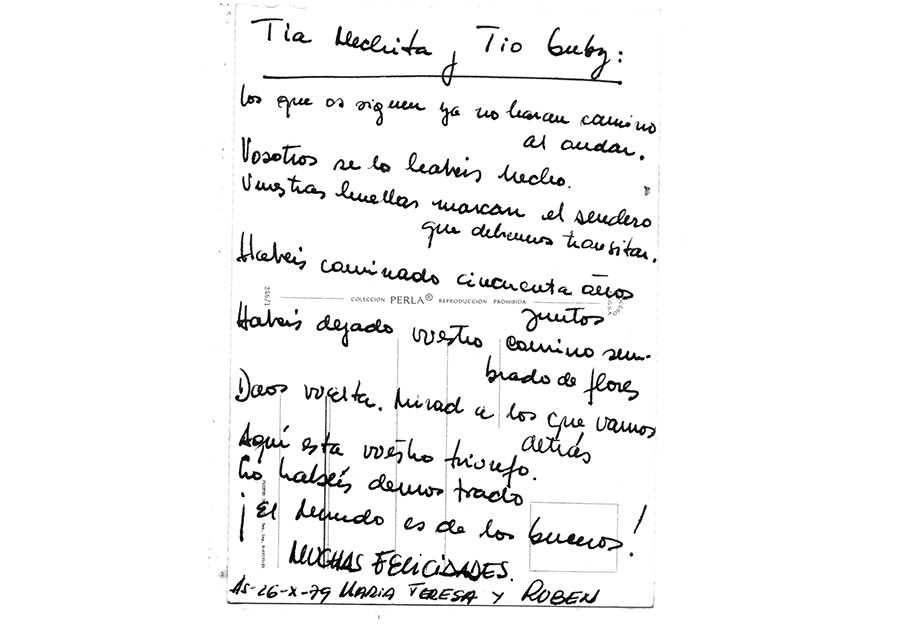 Tia Mechita y Tio Guby:
los que os siguen ya no haran camino
al andar.
Vosotros se lo habéis hecho.
Vuestras huellas marcan el sendero
que debemos transitar.
Habeis caminado cincuenta años
246/1 COLECCION PERLA® REPRODUCCION PROHIBIDA
juntos
Habeis dejado vuestro camino sem-
brado de flores
Daos vuelta. Mirad a los que vamos
detrás
Aquí esta vuestro triunfo.
Lo habéis demostrado
¡El Mundo es de los buenos!
MUCHAS FELICIDADES.
As-26-X-79 MARIA TERESA Y RUBEN